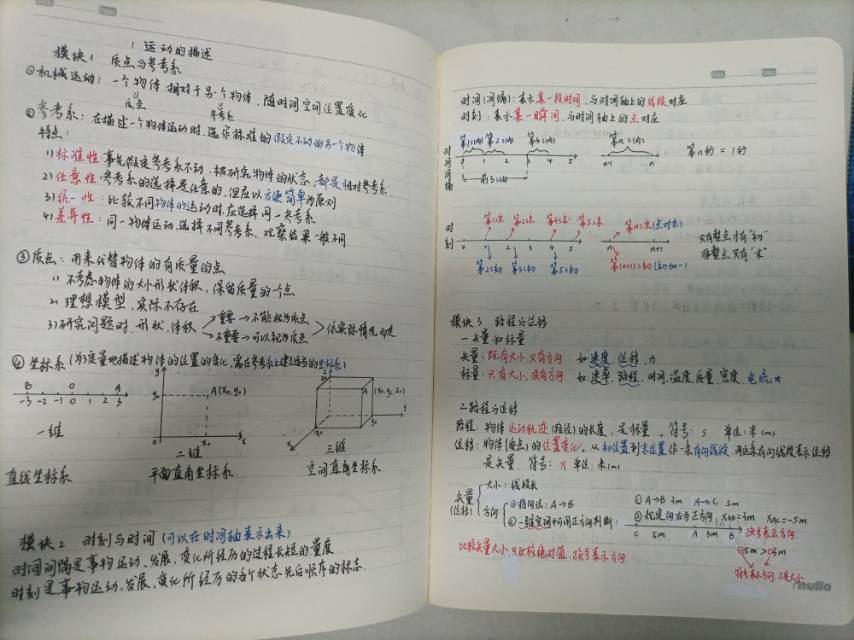 1 运动的描述
模块1 质点与参考系
①机械运动：一个物体相对于另一个物体，随时间空间位置变化
质点 参考系
②参考系：在描述一个物体运动时，选作标准的假定不动的另一个物体
特点：
1)标准性：事先假定参考系不动，被研究物体的状态，都是相对参考系
2)任意性：参考系的选择是任意的，但应以方便简单为原则
3)统一性：比较不同物体的运动时，应选择同一参考系
4)差异性：同一物体运动，选择不同参考系，观察结果一般不同
③质点：用来代替物体的有质量的点
1)不考虑物体的大小形状体积，保留质量的一个点
2)理想模型，实际不存在
3)研究问题时，形状、体积
重要→不能视为质点
不重要→可以视为质点
依实际情况而定
④坐标系（为了定量地描述物体的位置的变化，需在参考系上建立适当的坐标系）
B O A
-3 -2 -1 0 1 2 3
一维
直线坐标系
y
y₀ A(x₀,y₀)
0 x₀ x
二维
平面直角坐标系
A (x₀,y₀,z₀)
三维
空间直角坐标系
模块2 时刻与时间（可以在时间轴表示出来）
时间间隔是事物运动、发展、变化所经历的过程长短的量度
时刻是事物运动、发展、变化所经历的各个状态先后顺序的标志.
时间(间隔)：表示某一段时间，与时间轴上的线段对应
时刻：表示某一瞬间，与时间轴上的点对应
时间间隔
第1s(内) 第2s(内) 第4s(内) 第ns(内)
0 1 2 3 4 5 n-1 n
第n秒=1秒
前3s(内)
时刻
第1s末 第2s末 第4s末 第5s末 第ns末(点对末)
0 1 2 3 4 5 n n+1
第2s初 第3s初 第5s初 第(n+1)s初
只有整点才有“初”
非整点只有“末”.
模块3 路程与位移
一.矢量和标量
矢量：既有大小，又有方向 如：速度，位移，力
标量：只有大小，没有方向 如：速率，路程，时间，温度，质量，密度，电流★
二.路程与位移
路程：物体运动轨迹(路径)的长度，是标量，符号：s 单位：米(m)
位移：物体(质点)的位置变化，从初位置到末位置作一条有向线段，用这条有向线段表示位移
是矢量，符号：x 单位：米(m)
矢量(位移)
大小：线段长
方向
①指向法：A→B
②一维空间中可用正负判断：
①A→B 3m A→C 5m
②规定向右为正方向，xAB=3m xAC=-5m
C 5m A 3m B
正负号表示方向
比较矢量大小，只比较绝对值，正负号表示方向
-5m>3m
符号表示方向，不是大小
nulla